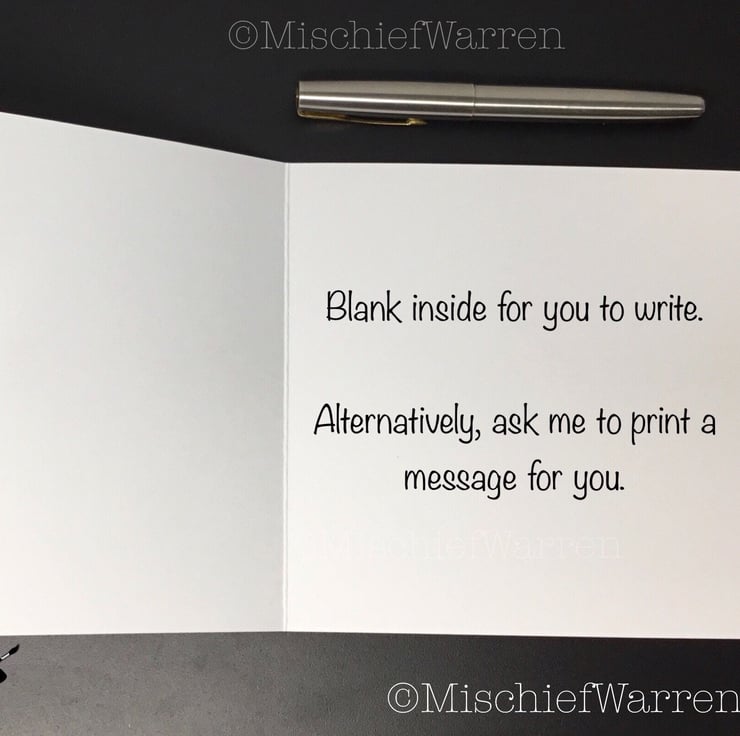 ©MischiefWarren
Blank inside for you to write.
Alternatively, ask me to print a
message for you.
©MischiefWarren
©MischiefWarren